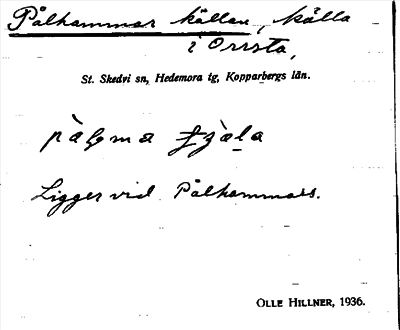 Pålhammar källan, källa
i Orrsta,
St. Skedvi sn, Hedemora tg, Kopparbergs län.
Ligger vid Pålhammars.
OLLE HILLNER, 1936.